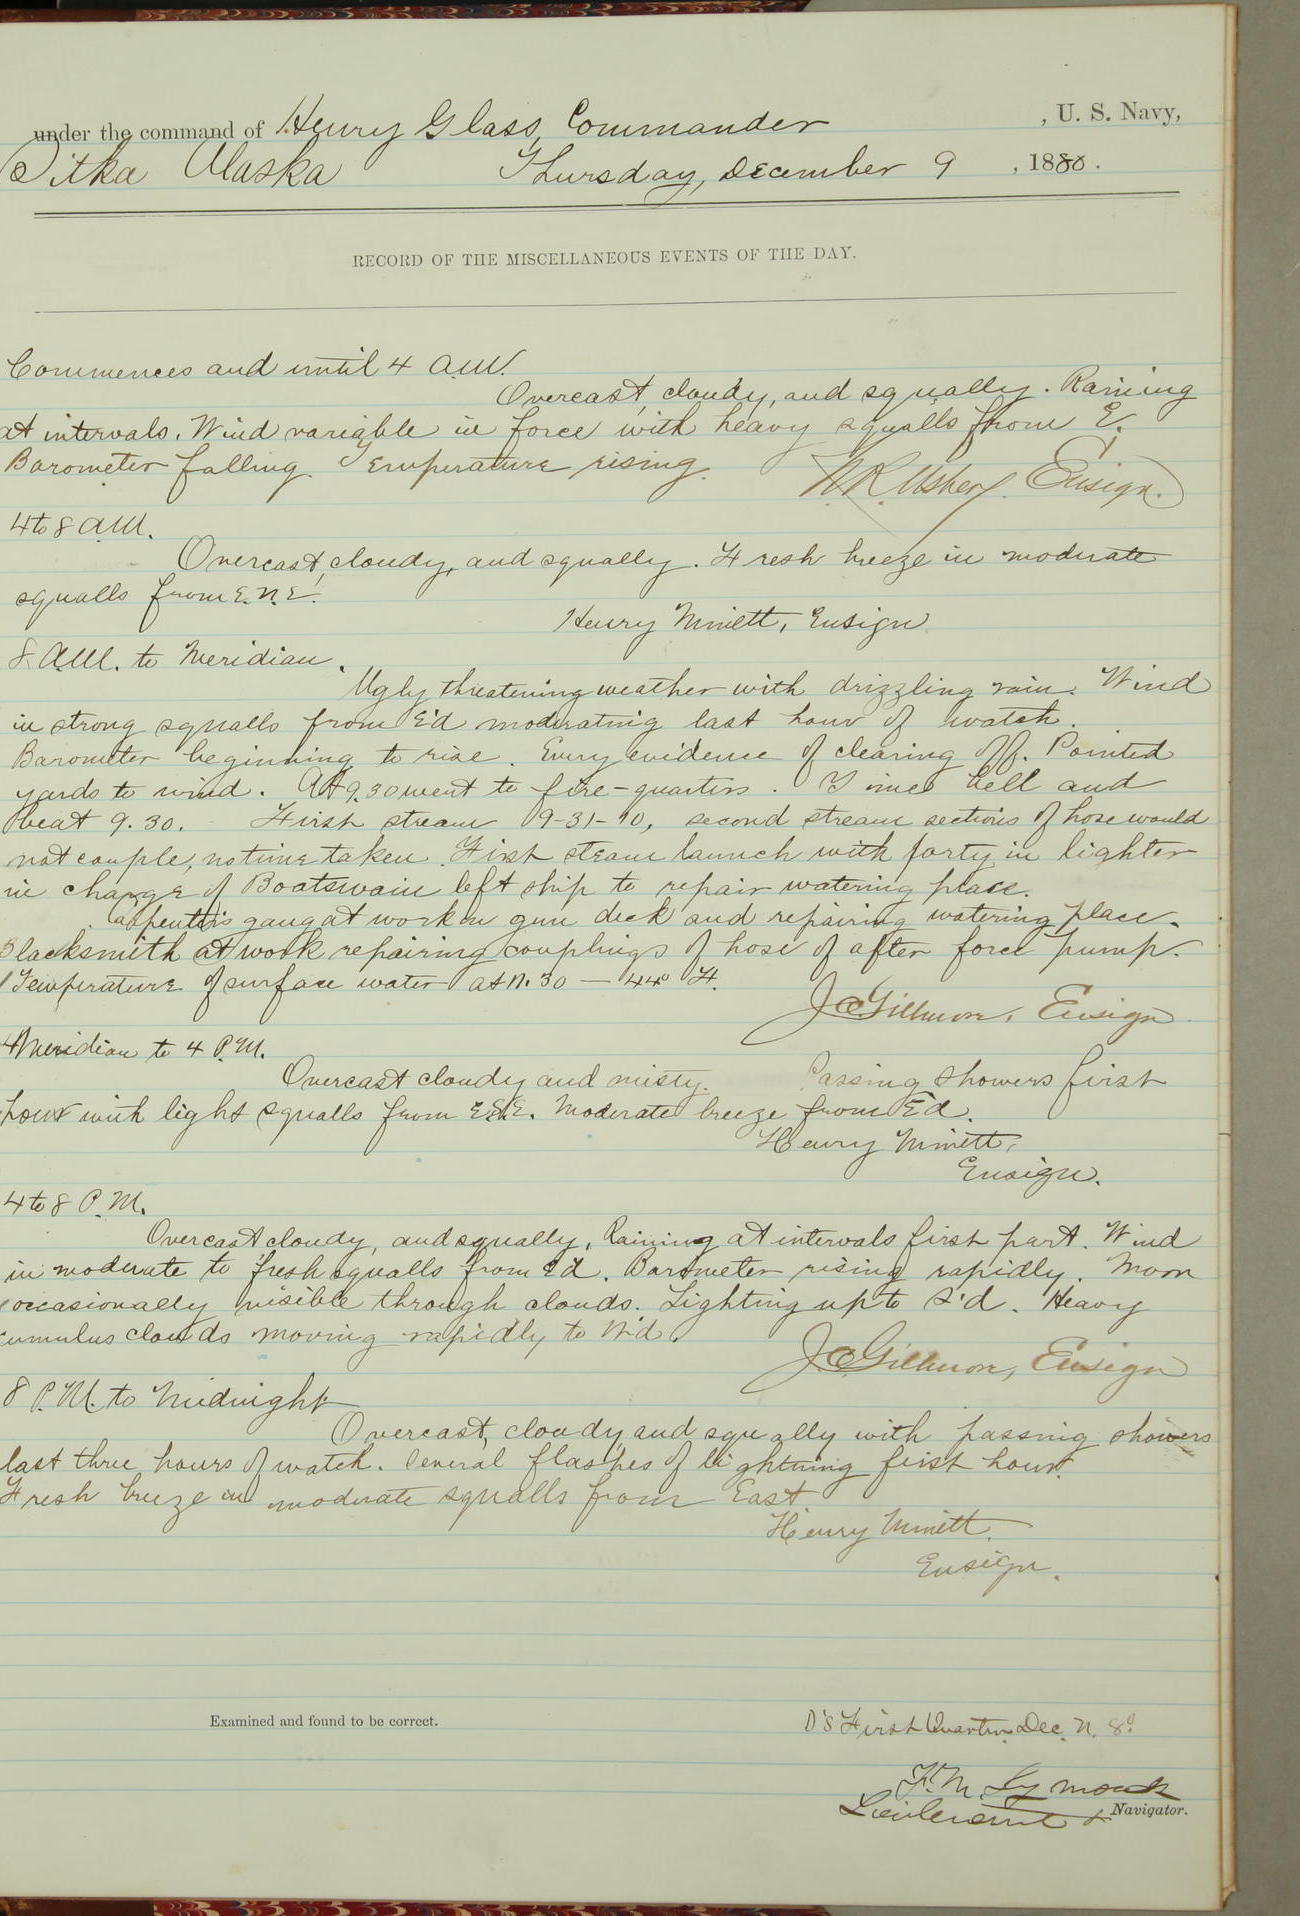 under the command of Henry Glass, Commander , U. S. Navy,
Sitka Alaska Thursday, December 9 , 1880.
RECORD OF THE MISCELLANEOUS EVENTS OF THE DAY.
Commences and until 4 A.M.
Overcast, cloudy, and squally. Raining
at intervals. Wind variable in force with heavy squalls from E.
Barometer falling. Temperature rising.
N.R. Usher, Ensign.
4 to 8 A.M.
Overcast, cloudy, and squally. Fresh breeze in moderate
squalls from E.N.E.
Henry Minett, Ensign
8 A.M. to Meridian.
Ugly threatening weather with drizzling rain. Wind
in strong squalls from E'd moderating last hour of watch.
Barometer beginning to rise. Every evidence of clearing off. Pointed
yards to wind. At 9.30 went to fire-quarters. Times bell and
beat 9.30. First stream 9-31-10, second stream sections of hose would
not couple, no time taken. First steam launch with party in lighter
in charge of Boatswain left ship to repair watering place.
Carpenter's gang at work on gun deck and repairing watering place.
Blacksmith at work repairing couplings of hose of after force pump.
Temperature of surface water at 11.30 — 44° F.
J.C. Gillmore, Ensign
Meridian to 4 P.M.
Overcast cloudy and misty. Passing showers first
hour with light squalls from E.S.E. Moderate breeze from E'd.
Henry Minett,
Ensign.
4 to 8 P.M.
Overcast cloudy, and squally, Raining at intervals first part. Wind
in moderate to fresh squalls from E'd. Barometer rising rapidly. Moon
occasionally visible through clouds. Lighting up to S'd. Heavy
cumulus clouds moving rapidly to N'd.
J.C. Gillmore, Ensign
8 P.M. to Midnight
Overcast, cloudy, and squally with passing showers
last three hours of watch. Several flashes of lightning first hour.
Fresh breeze in moderate squalls from East
Henry Minett.
Ensign.
Examined and found to be correct.
First Quarter Dec.
F.M. Symonds
Lieutenant & Navigator.